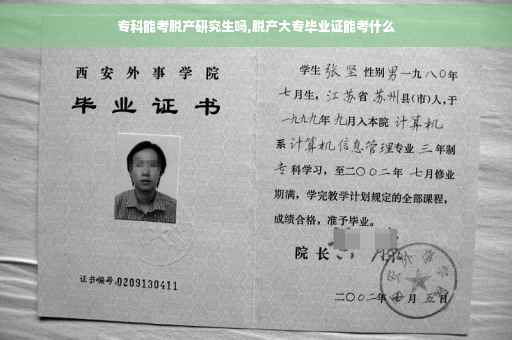 专科能考脱产研究生吗,脱产大专毕业证能考什么
西安外事学院
毕业证书
证书编号:0209130411
学生 张坚 性别 男 一九八〇年
七月生, 江苏省 苏州 县(市)人,于
一九九九年 九月入本院 计算机
系 计算机信息管理 专业 三 年制
专 科学习, 至二〇〇二年 七月修业
期满, 学完教学计划规定的全部课程,
成绩合格, 准予毕业。
院长
二〇〇二年 月 五 日